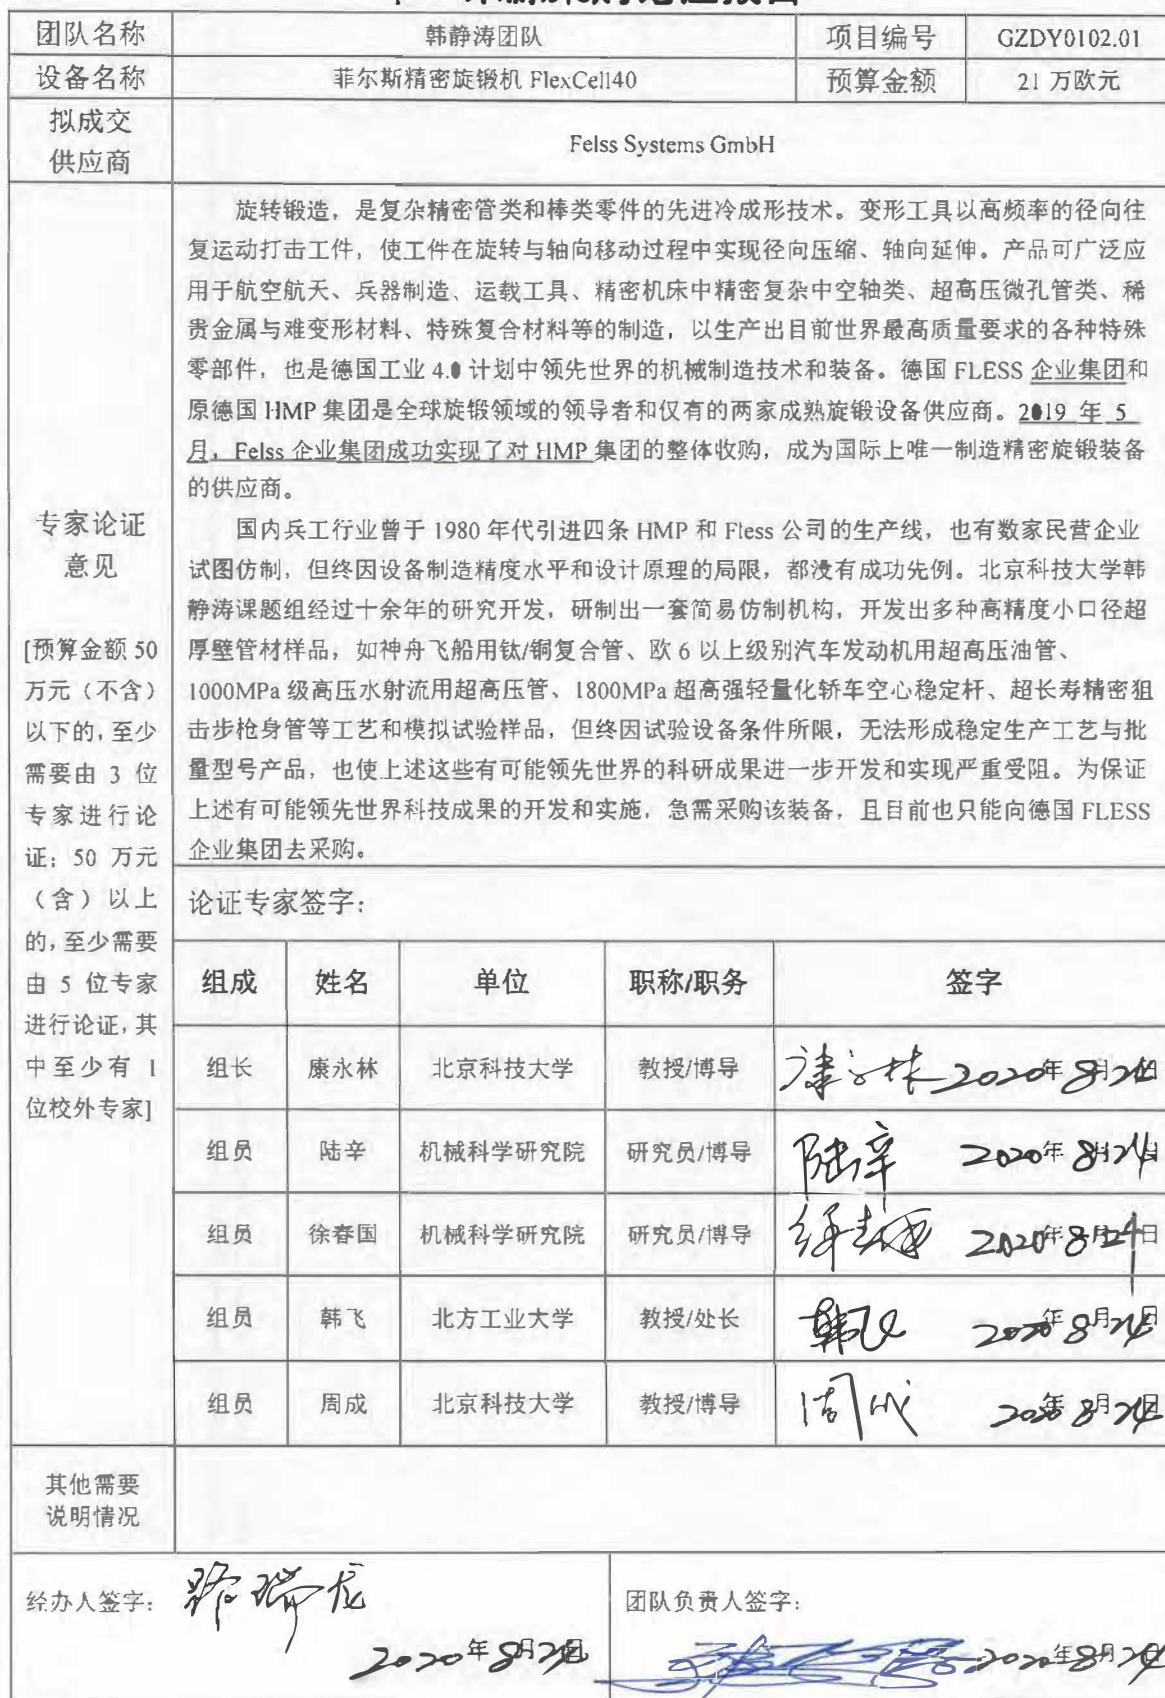 团队名称 韩静涛团队 项目编号 GZDY0102.01
设备名称 菲尔斯精密旋锻机 FlexCell40 预算金额 21 万欧元
拟成交
供应商
Felss Systems GmbH
旋转锻造，是复杂精密管类和棒类零件的先进冷成形技术。变形工具以高频率的径向往
复运动打击工件，使工件在旋转与轴向移动过程中实现径向压缩、轴向延伸。产品可广泛应
用于航空航天、兵器制造、运载工具、精密机床中精密复杂中空轴类、超高压微孔管类、稀
贵金属与难变形材料、特殊复合材料等的制造，以生产出目前世界最高质量要求的各种特殊
零部件，也是德国工业 4.0 计划中领先世界的机械制造技术和装备。德国 FLESS 企业集团和
原德国 HMP 集团是全球旋锻领域的领导者和仅有的两家成熟旋锻设备供应商。2019 年 5
月，Felss 企业集团成功实现了对 HMP 集团的整体收购，成为国际上唯一制造精密旋锻装备
的供应商。
国内兵工行业曾于 1980 年代引进四条 HMP 和 Fless 公司的生产线，也有数家民营企业
试图仿制，但终因设备制造精度水平和设计原理的局限，都没有成功先例。北京科技大学韩
静涛课题组经过十余年的研究开发，研制出一套简易仿制机构，开发出多种高精度小口径超
厚壁管材样品，如神舟飞船用钛/铜复合管、欧 6 以上级别汽车发动机用超高压油管、
1000MPa 级高压水射流用超高压管、1800MPa 超高强轻量化轿车空心稳定杆、超长寿精密狙
击步枪身管等工艺和模拟试验样品，但终因试验设备条件所限，无法形成稳定生产工艺与批
量型号产品，也使上述这些有可能领先世界的科研成果进一步开发和实现严重受阻。为保证
上述有可能领先世界科技成果的开发和实施，急需采购该装备，且目前也只能向德国 FLESS
企业集团去采购。
专家论证
意见
[预算金额 50
万元（不含）
以下的，至少
需要由 3 位
专家进行论
证；50 万元
（含）以上
的，至少需要
由 5 位专家
进行论证，其
中至少有 1
位校外专家]
论证专家签字：
组成 姓名 单位 职称/职务 签字
组长 康永林 北京科技大学 教授/博导 康永林 2020年8月24日
组员 陆辛 机械科学研究院 研究员/博导 陆辛 2020年8月24日
组员 徐春国 机械科学研究院 研究员/博导 徐春国 2020年8月24日
组员 韩飞 北方工业大学 教授/处长 韩飞 2020年8月24日
组员 周成 北京科技大学 教授/博导 周成 2020年8月24日
其他需要
说明情况
经办人签字： 2020年8月24日
团队负责人签字： 2020年8月24日